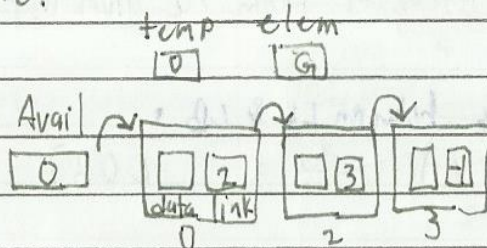 temp elem
0 G
Avail
0 2 3 -1
data link
0 2 3